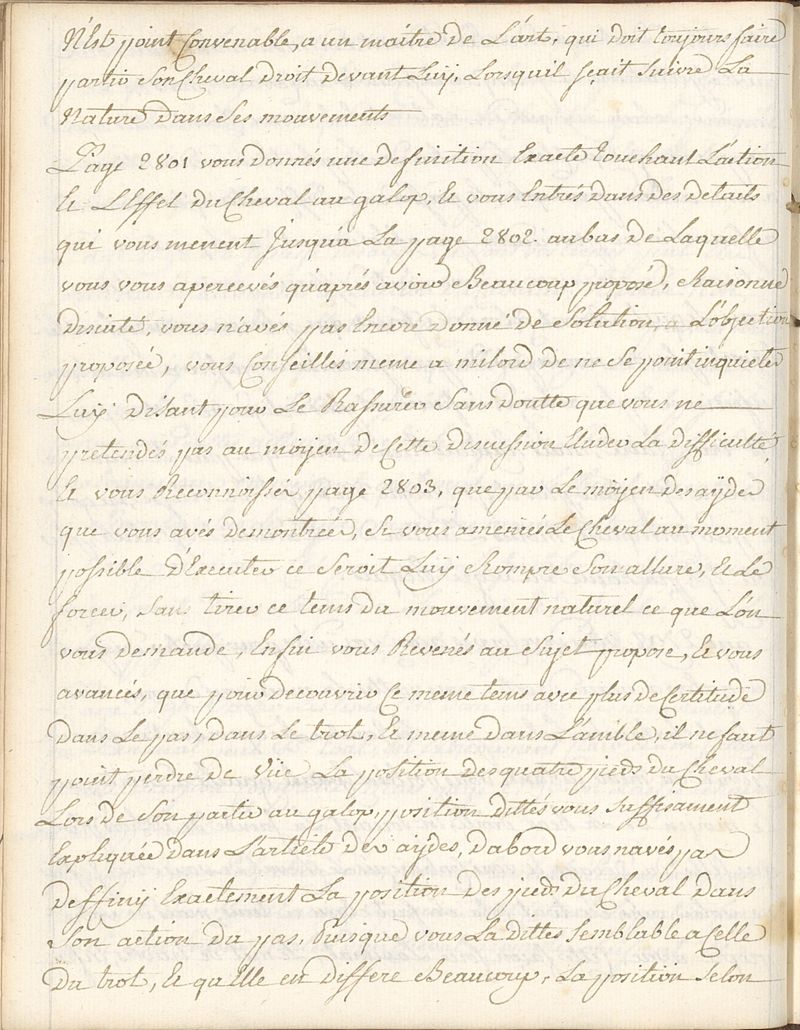 N'Est point Convenable, a un maitre de L'art, qui doit toujours faire
partir Son Cheval droit devant Luÿ, Lorsquil sçait Suivre La
Nature dans Ses mouvements
Page 2801 vous donnés une definition Exacte touchant L'action
Et L'Effet du Cheval au galop, Et vous Entrés dans des details
qui vous menent Jusqu'a La page 2802. au bas de Laquelle
vous vous apercevés qu'aprés avoir Beaucoup proposé, Raisonné
discuté, vous n'avés pas Encore donné de Solution, a L'objection
proposée, vous Conseillés meme a milord de ne Se point inquieter
Luÿ disant pour Le Rassurer Sans doutte que vous ne
pretendés pas au moÿen de Cette discussion Eluder La difficulté,
Et vous Reconnoissés page 2803, que par Le moÿen des aÿdes
que vous avés demontrées, Si vous ameniés Le Cheval au moment
possible d'Executer ce Seroit Luÿ Rompre Son allure, Et Le
forcer, Sans tirer ce tems du mouvement naturel ce que L'on
vous demande, Enfin vous Revenés au Sujet proposé, Et vous
avancés, que pour decouvrir Ce meme tems avec plus de Certitude
dans Le pas, dans Le trot, Et meme dans L'amble, il ne faut
point perdre de vüe La position des quatre pieds du Cheval
Lors de Son partir au galop, position dittes vous Suffisament
Expliquée dans L'article des aÿdes, dabord vous navés pas
deffinÿ Exactement La position des pieds du Cheval dans
Son action du pas, Puisque vous La dittes Semblable a Celle
du trot, Et qu'Elle en differe Beaucoup, La position Selon